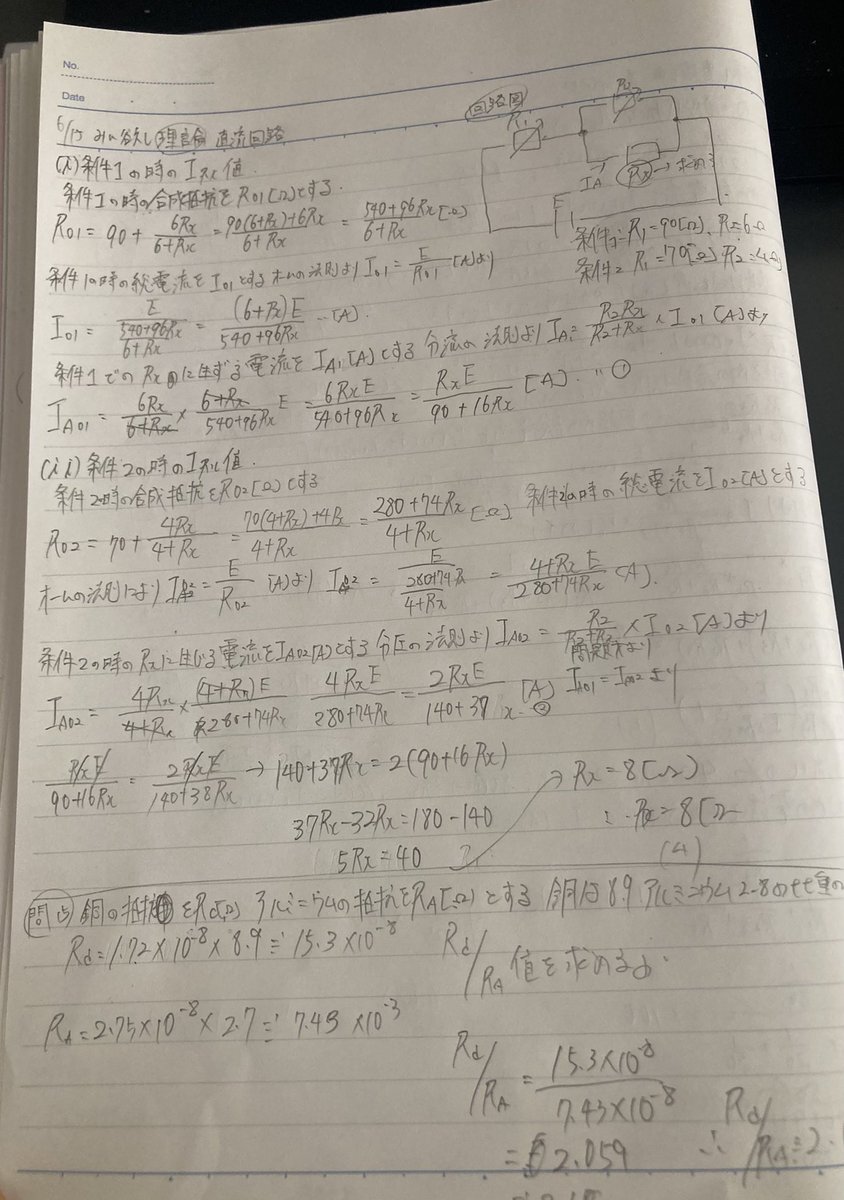 No.
Date
6/15 みん欲し 理論 直流回路
回路図
R1
R2
IA
Rx → 求める
E
条件1:R1=90[Ω], R2=6Ω
条件2 R1=70[Ω] R2=4Ω
(i) 条件1の時の
条件1の時の合成抵抗をR01[Ω]とする.
R01 = 90 + 6Rx/6+Rx = 90(6+Rx)+6Rx/6+Rx = 540+96Rx/6+Rx [Ω]
条件1の時の総電流をI01とするオームの法則より I01 = E/R01 [A]より
I01 = E/540+96Rx/6+Rx = (6+Rx)E/540+96Rx ...[A].
条件1でのRxに生ずる電流をIA1[A]とする 分流の法則より IA1= R2Rx/R2+Rx × I01 [A]より
IA01 = 6Rx/6+Rx × 6+Rx/540+96Rx E = 6RxE/540+96Rx = RxE/90+16Rx [A]. ①
(ii) 条件2の時の
条件2の時の合成抵抗をR02[Ω]とする
R02 = 70 + 4Rx/4+Rx = 70(4+Rx)+4Rx/4+Rx = 280+74Rx/4+Rx [Ω] 条件2の時の総電流をI02[A]とする
オームの法則により I02 = E/R02 [A]より I02 = E/280+74R/4+Rx = 4+Rx E/280+74Rx [A].
条件2の時のRxに生じる電流をIA02[A]とする 分圧の法則より IA02 = R2/R2+Rx × I02 [A]より
問題文より
IA02 = 4Rx/4+Rx × (4+Rx)E/280+74Rx 4RxE/280+74Rx = 2RxE/140+37x [A] ② IA01 = IA02 より
RxE/90+16Rx = 2RxE/140+38Rx → 140+37Rx = 2(90+16Rx)
37Rx-32Rx=180-140
5Rx=40
Rx = 8[Ω]
∴ Rx=8[Ω
(4)
問 銅の抵抗をRd[Ω] アルミニウムの抵抗をRA[Ω]とする 銅は8.9 アルミニウム2-8の比重の
Rd=1.72×10-8 × 8.9 ≒ 15.3×10-8
Rd/RA 値を求める
RA=2.75×10-8 × 2.7 ≒ 7.43 ×10-3
Rd/RA = 15.3×10-8/7.43×10-8
= 2.059
∴ Rd/RA≒2.